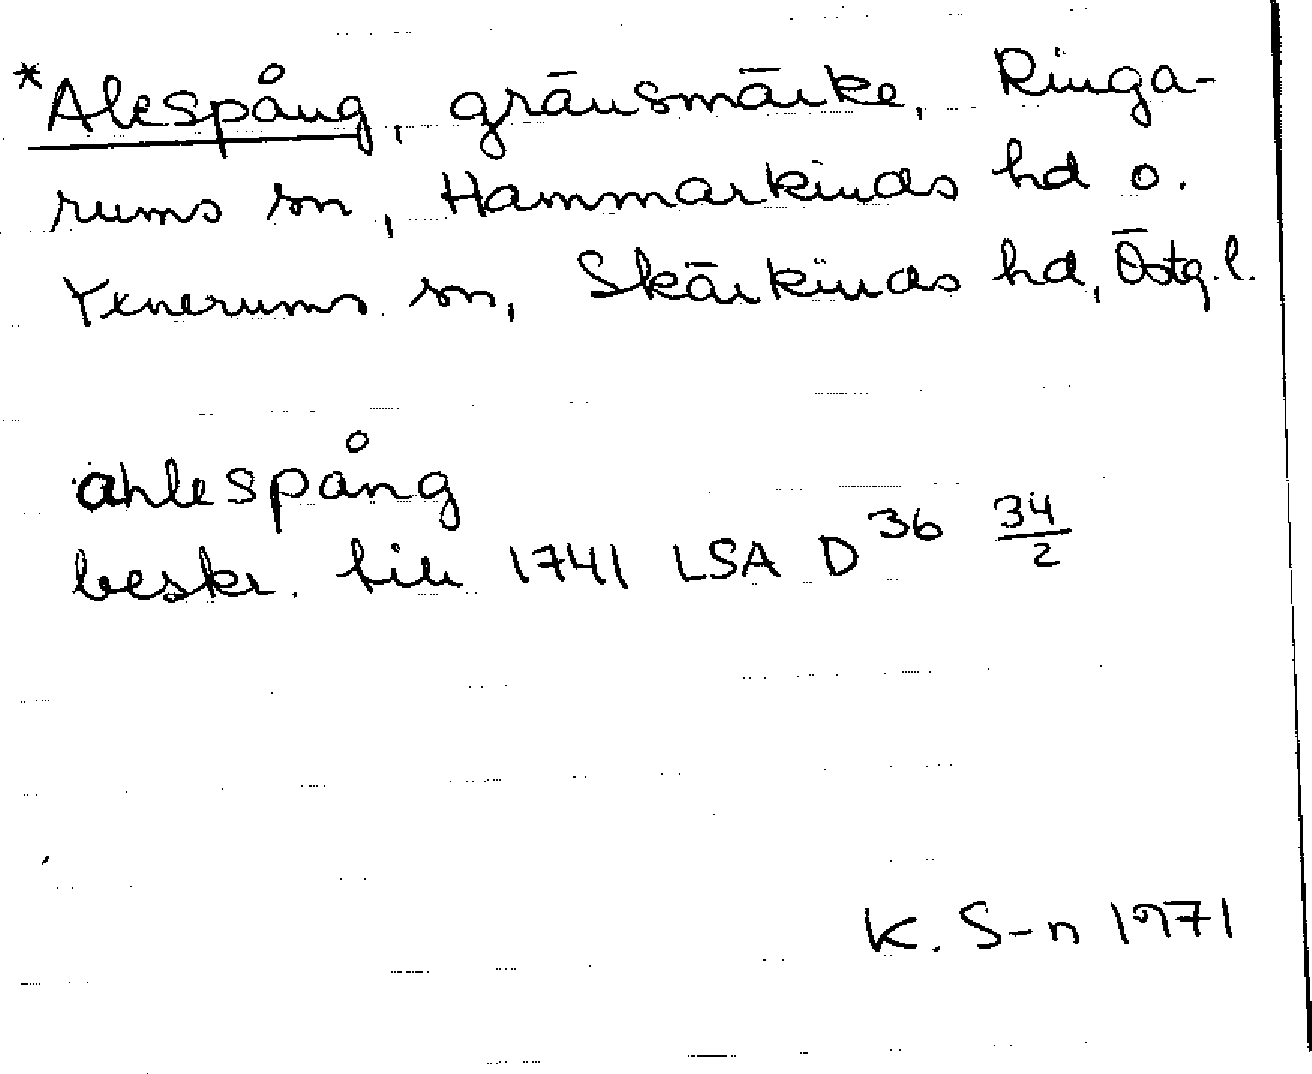 *Alespång, gränsmärke, Ringa-
rums sn, Hammarkinds hd o.
Yxnerums sn, Skärkinds hd, Östg.l.
ahlespång
beskr. till 1741 LSA D 36 34/2
K. S-n 1971